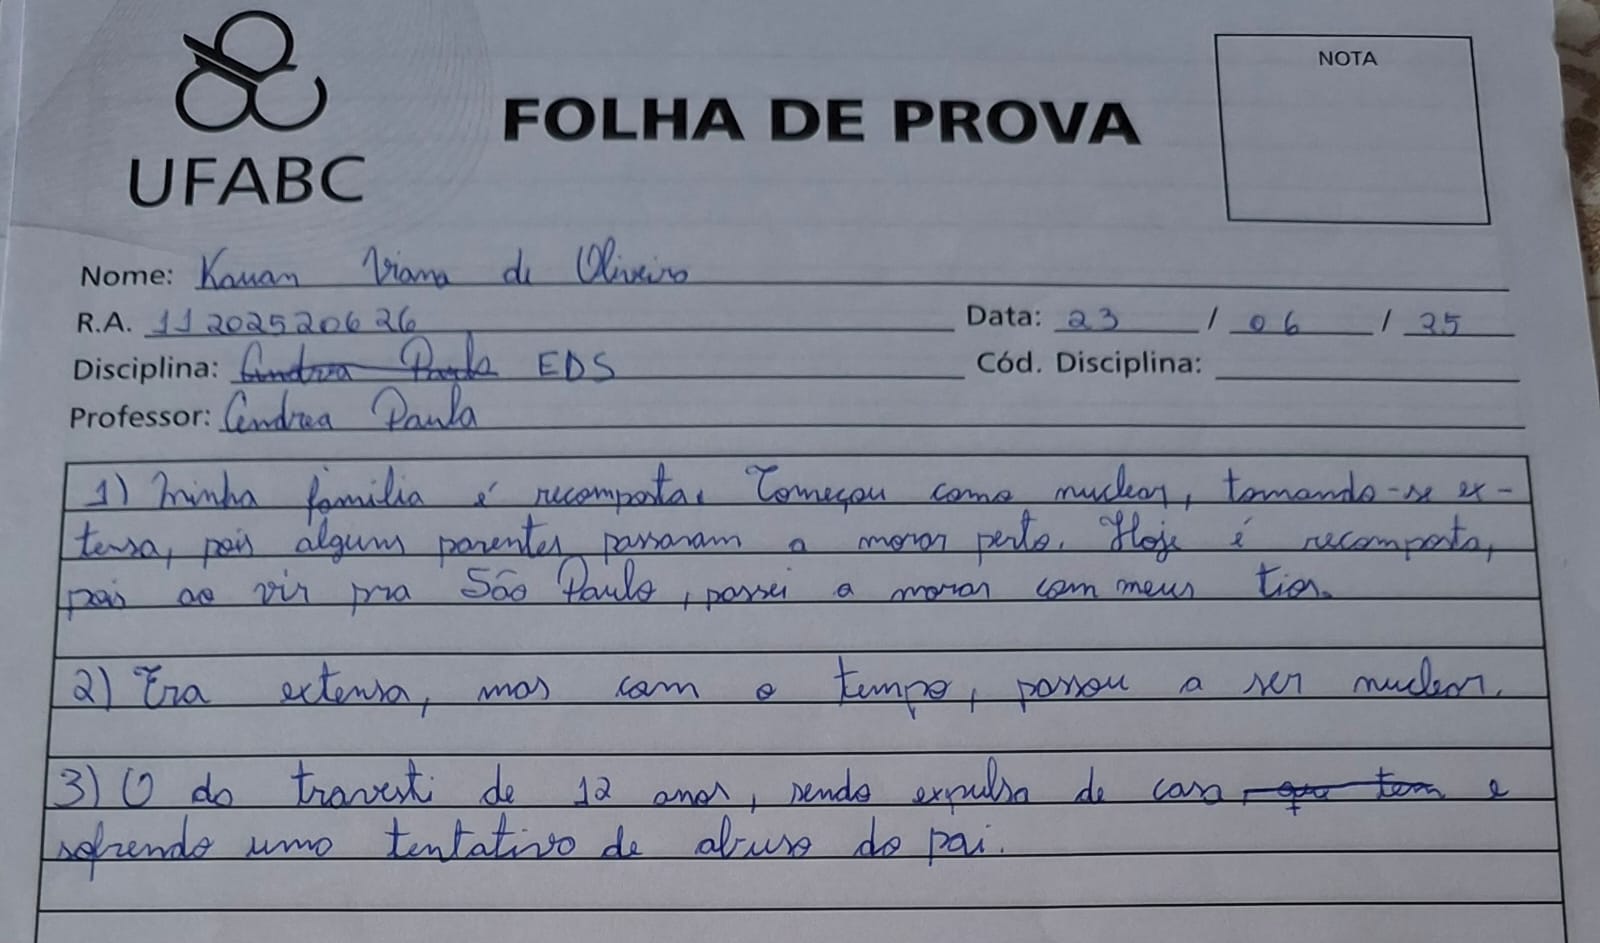 UFABC
FOLHA DE PROVA
NOTA
Nome: Kauan Viana de Oliveira
R.A. 11202520626 Data: 23 / 06 / 25
Disciplina: Andrea Paula EDS Cód. Disciplina:
Professor: Andrea Paula
1) Minha família é recomposta. Começou como nuclear, tornando-se ex-
tensa, pois alguns parentes passaram a morar perto. Hoje é recomposta,
pois ao vir pra São Paulo, passei a morar com meus tios.
2) Era extensa, mas com o tempo, passou a ser nuclear.
3) O da travesti de 12 anos, sendo expulsa de casa, que tem e
sofrendo uma tentativa de abuso do pai.